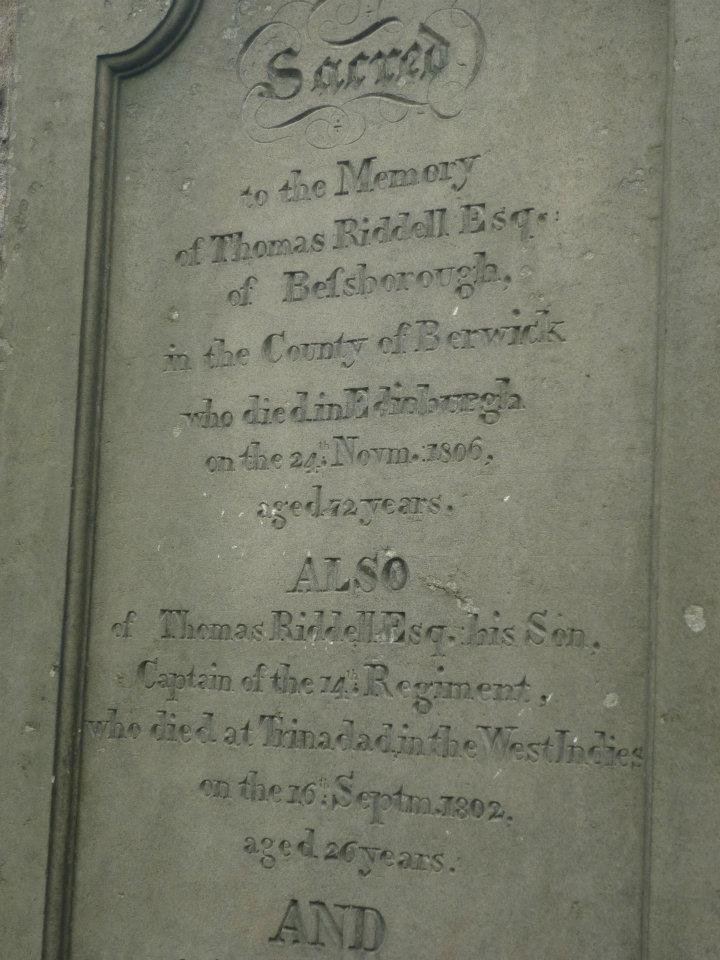 Sacred
to the Memory
of Thomas Riddell Esq.
of Beſsborough,
in the County of Berwick
who died in Edinburgh
on the 24th. Novm. 1806,
aged 72 years.
ALSO
of Thomas Riddell Esq. his Son,
Captain of the 14th. Regiment,
who died at Trinadad in the West Indies
on the 16th. Septm. 1802,
aged 26 years.
AND